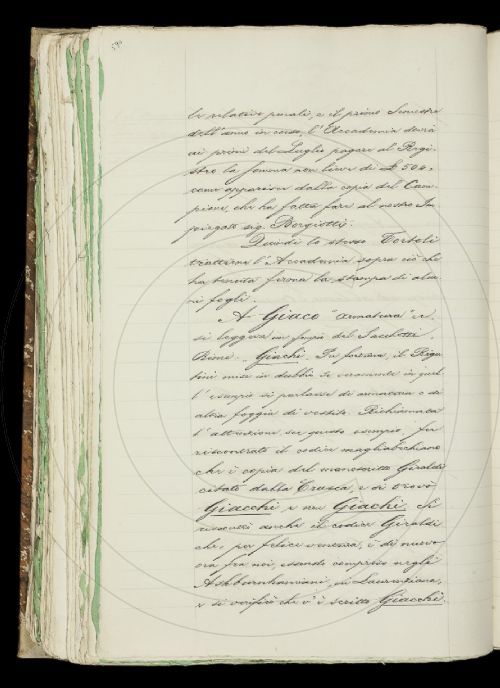 le relative penali, e il primo Semestre
dell'anno in corso, l'Accademia dovrà
ai primi del Luglio pagare al Regi-
stro la somma non lieve di £ 504,
come apparisce dalla copia del Cam-
pione, che ha fatta fare al nostro Im-
piegato sig. Borgiotti.
Quindi lo stesso Tortoli
trattiene l'Accademia sopra ciò che
ha tenuta ferma la stampa di alcu-
ni fogli.
A Giaco "armatura" si
leggeva in fine del Sacchetti,
Rime: Giachi. In forse, il Rigu-
tini mise in dubbio se veramente in quel
l'esempio si parlasse di armatura o di
altra foggia di vestito. Richiamata
l'attenzione su questo esempio, fu
riscontrato il codice magliabechiano
che è copia del manoscritto Giraldi
citato dalla Crusca, e vi trovò
Giacchi e non Giachi. Si
riscontrò anche il codice Giraldi
che, per felice ventura, è di nuovo
ora fra noi, essendo compreso negli
Ashburnhamiani, in Laurenziana,
e si verificò che v'è scritto Giacchi.